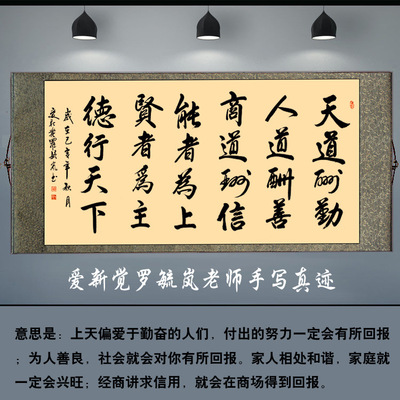 天道酬勤
人道酬善
商道酬信
能者為上
賢者為主
德行天下
歲在己亥年秋月
爱新觉罗毓岚老师手写真迹
意思是：上天偏爱于勤奋的人们，付出的努力一定会有所回报
；为人善良，社会就会对你有所回报。家人相处和谐，家庭就
一定会兴旺；经商讲求信用，就会在商场得到回报。